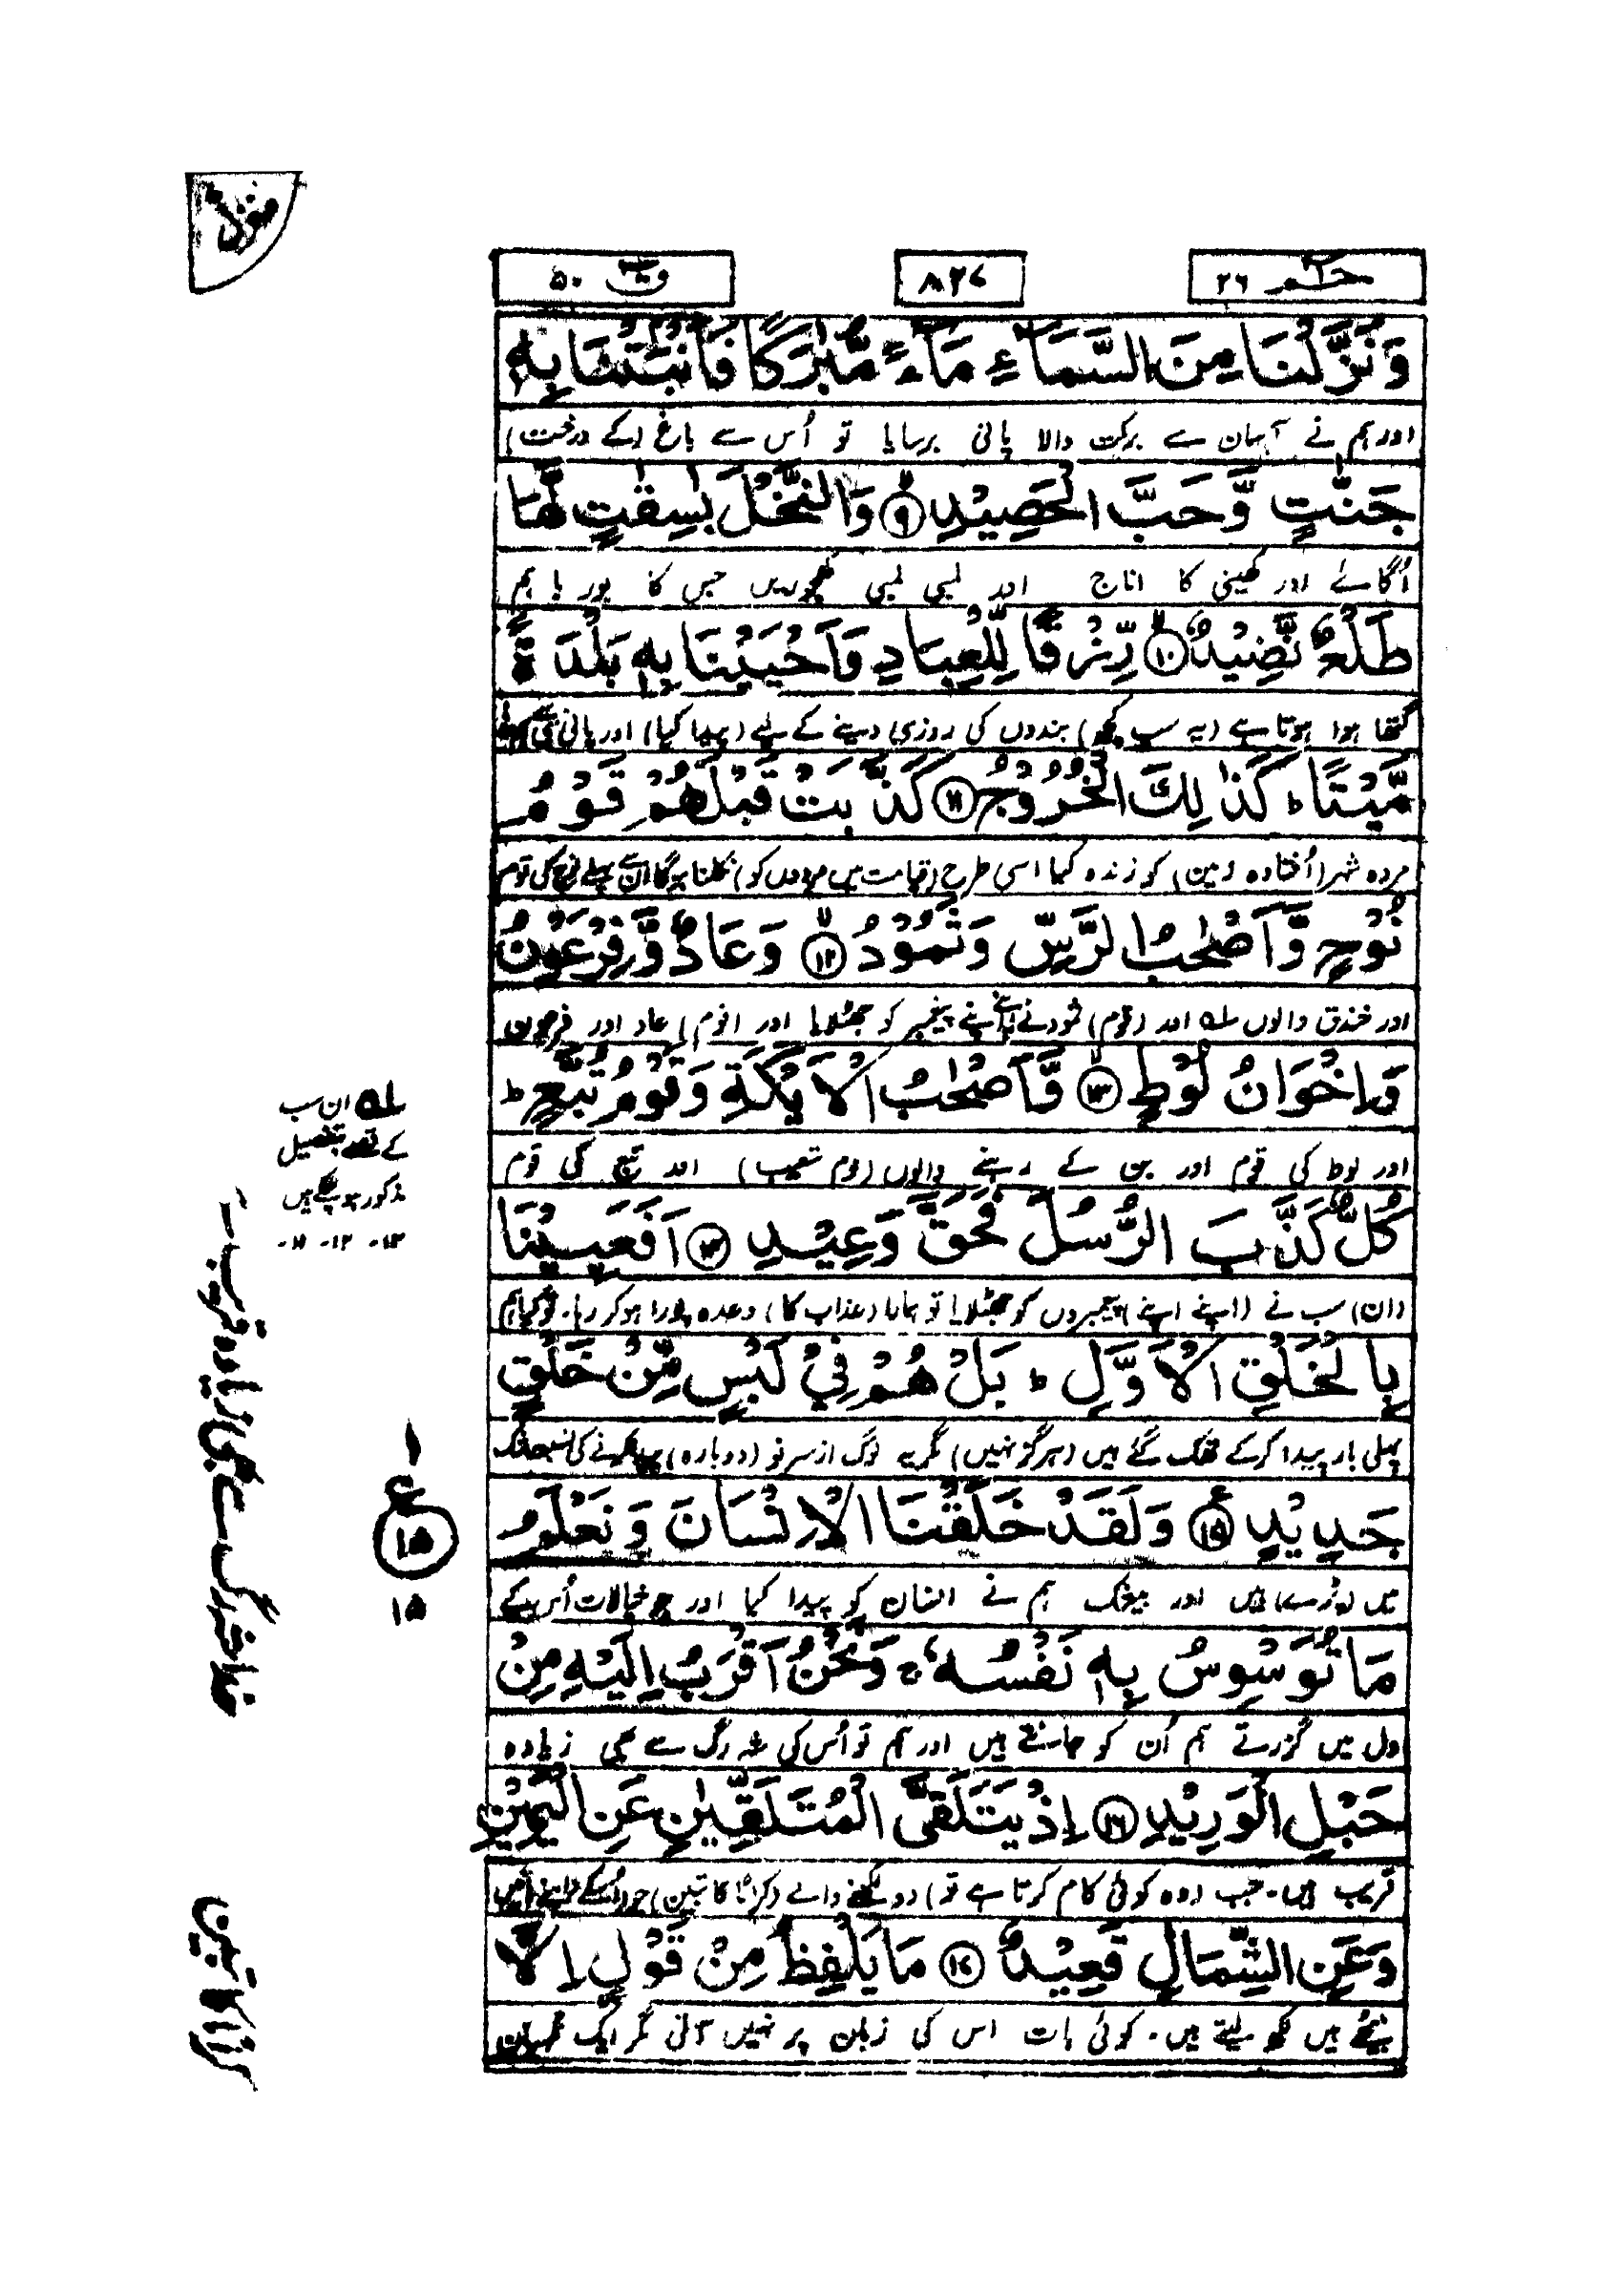 منزل
حٰمٓ ٢٦
٨٢٧
قٓ ٥٠
وَنَزَّلْنَا مِنَ السَّمَآءِ مَآءً مُّبٰرَكًا فَاَنْۢبَتْنَا بِهٖ
اور ہم نے آسمان سے برکت والا پانی برسایا تو اُس سے باغ (کے درخت)
جَنّٰتٍ وَّحَبَّ الْحَصِيْدِ ۙ‏﴿۹﴾ وَالنَّخْلَ بٰسِقٰتٍ لَّهَا
اُگائے اور کھیتی کا اناج اور لمبی لمبی کھجوریں جس کا بور باہم
طَلْعٌ نَّضِيْدٌ ۙ‏﴿۱۰﴾ رِّزْقًا لِّلْعِبَادِ وَاَحْيَيْنَا بِهٖ بَلْدَةً
گتھا ہوا ہوتا ہے (یہ سب کچھ) بندوں کی روزی دینے کے لیے (پیدا کیا) اور پانی سے
مَّيْتًا ؕ كَذٰلِكَ الْخُرُوْجُ ﴿۱۱﴾ كَذَّبَتْ قَبْلَهُمْ قَوْمُ
مردہ شہر (اُفتادہ زمین) کو زندہ کیا اسی طرح (قیامت میں مردوں کو) نکلنا ہوگا ان سے پہلے نوح کی قوم
نُوْحٍ وَّاَصْحٰبُ الرَّسِّ وَثَمُوْدُ ۙ‏﴿۱۲﴾ وَعَادٌ وَّفِرْعَوْنُ
اور خندق والوں ؎۱ اور (قوم) ثمود نے اپنے اپنے پیغمبر کو جھٹلایا اور (قوم) عاد اور فرعون
وَاِخْوَانُ لُوْطٍ ۙ‏﴿۱۳﴾ وَّاَصْحٰبُ الْاَيْكَةِ وَقَوْمُ تُبَّعٍ ؕ
اور لوط کی قوم اور بن کے رہنے والوں (قوم شعیب) اور تبع کی قوم
كُلٌّ كَذَّبَ الرُّسُلَ فَحَقَّ وَعِيْدِ ﴿۱۴﴾ اَفَعَيِيْنَا
(ان) سب نے (اپنے اپنے) پیغمبروں کو جھٹلایا تو ہمارا (عذاب کا) وعدہ پورا ہوکر رہا۔ تو کیا ہم
بِالْخَلْقِ الْاَوَّلِ ؕ بَلْ هُمْ فِيْ لَبْسٍ مِّنْ خَلْقٍ
پہلی بار پیدا کرکے تھک گئے ہیں (ہرگز نہیں) مگر یہ لوگ ازسرنو (دوبارہ) پیدا کرنے کی نسبت شک
جَدِيْدٍ ﴿۱۵﴾ وَلَقَدْ خَلَقْنَا الْاِنْسَانَ وَنَعْلَمُ
میں پڑے ہیں اور بیشک ہم نے انسان کو پیدا کیا اور جو خیالات اُس کے
مَا تُوَسْوِسُ بِهٖ نَفْسُهٗ ۚ وَنَحْنُ اَقْرَبُ اِلَيْهِ مِنْ
دل میں گزرتے ہم اُن کو جانتے ہیں اور ہم تو اُس کی شہ رگ سے بھی زیادہ
حَبْلِ الْوَرِيْدِ ﴿۱۶﴾ اِذْ يَتَلَقَّى الْمُتَلَقِّيٰنِ عَنِ الْيَمِيْنِ
قریب ہیں۔ جب (وہ کوئی کام کرتا ہے تو) دو لکھنے والے (کراماً کاتبین) جو اُس کے داہنے
وَعَنِ الشِّمَالِ قَعِيْدٌ ﴿۱۷﴾ مَا يَلْفِظُ مِنْ قَوْلٍ اِلَّا
بیٹھے ہیں لکھ لیتے ہیں۔ کوئی بات اس کی زبان پر نہیں آتی مگر ایک نگہبان
؎۱ ان سب
کے قصے بتفصیل
مذکور ہو چکے ہیں
۱۳- ۱۲- ۱۱-
۱
ع
۱۵
۱۵
خدا شہ رگ سے بھی زیادہ قریب ہے
کراماً کاتبین